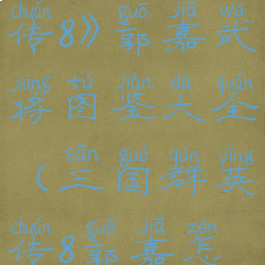 chuán guō jiā wǔ
传8》郭嘉武
jiàng tú jiàn dà quán
将图鉴大全
sān guó qún yīng
（三国群英
chuán guō jiā zěn
传8郭嘉怎